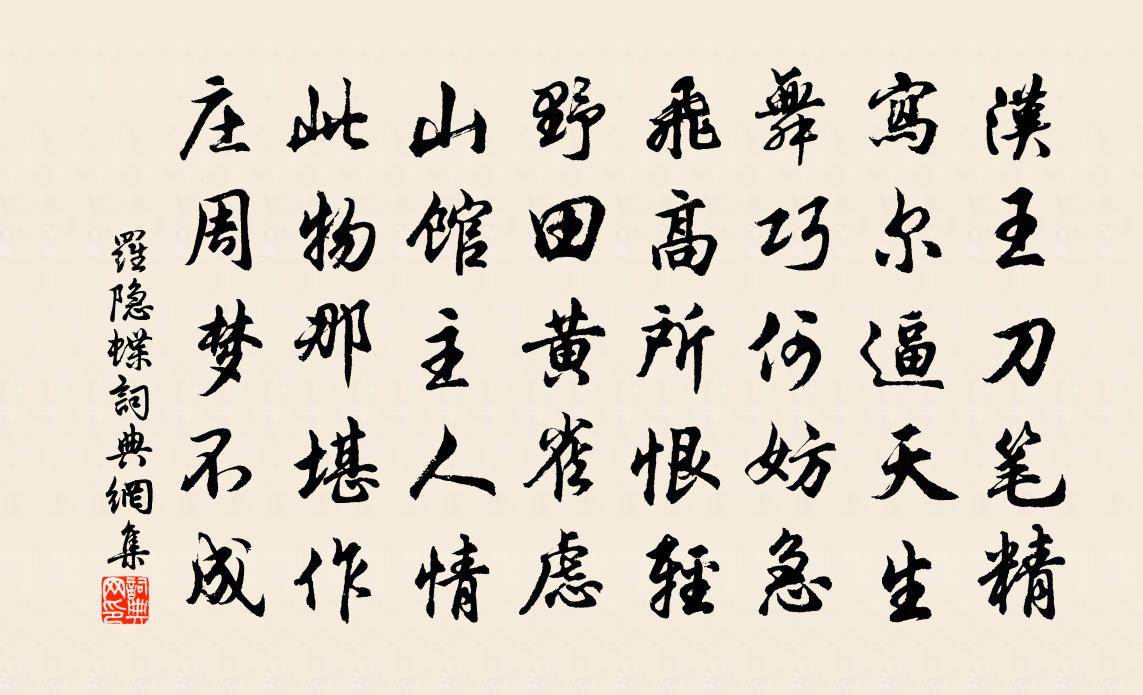 漢王刀笔精
寫尔逼天生
舞巧何妨急
飛高所恨輕
野田黄雀慮
山館主人情
此物那堪作
庄周梦不成
羅隐蝶詞典網集
詞典网印